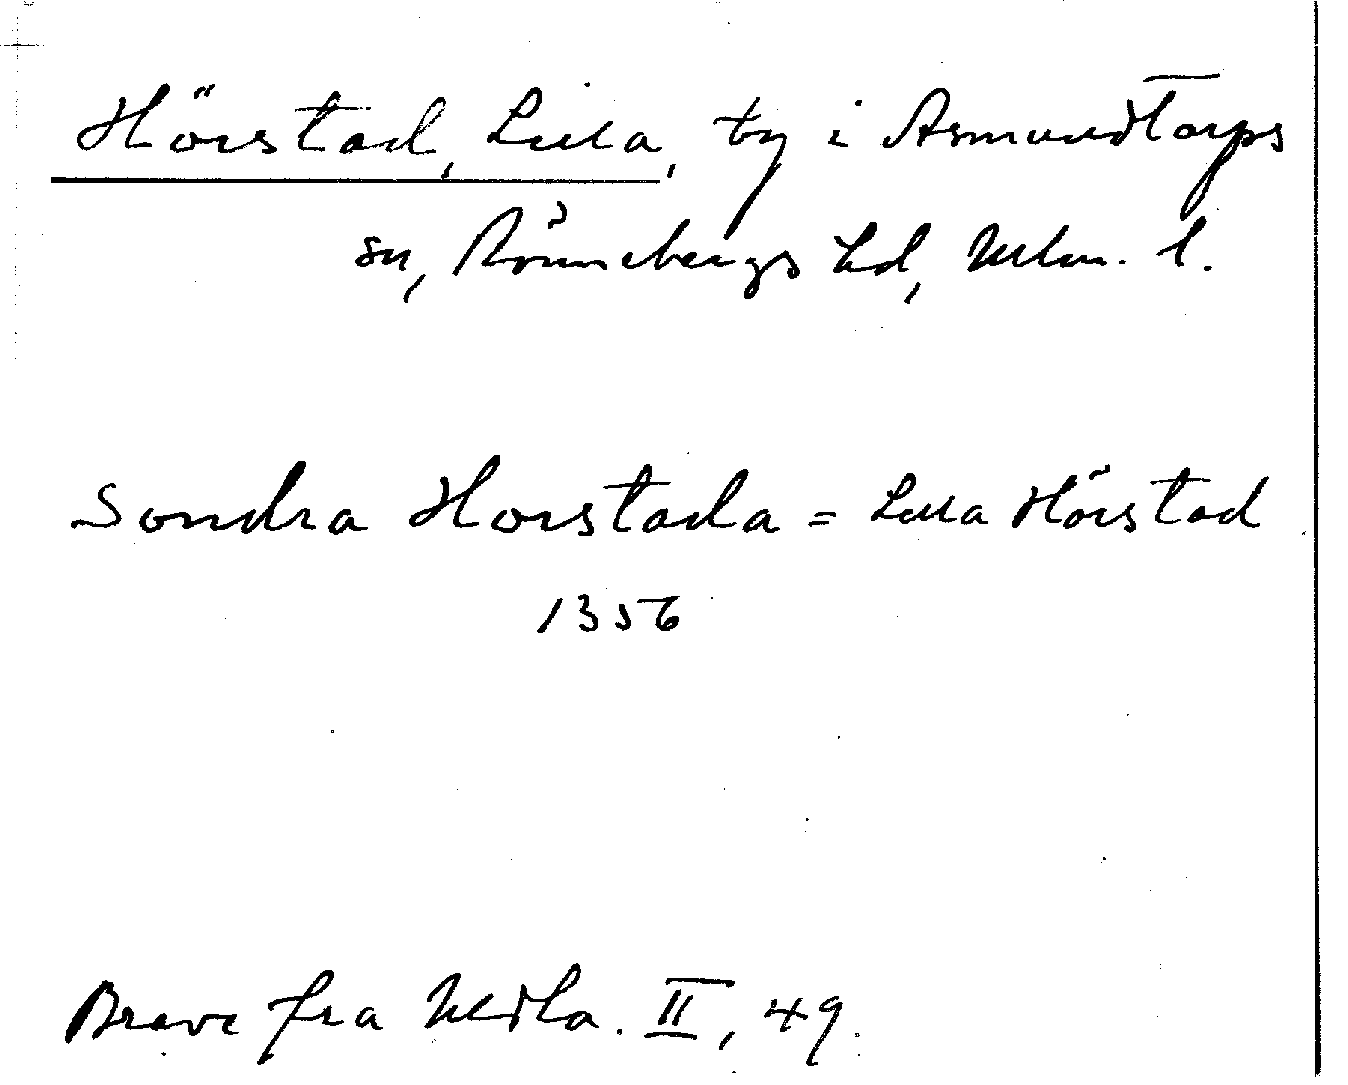 Hörstad, Lilla, by i Asmundtorps
sn, Rönnebergs hd, Mlm. l.
Sondra Horstada = Lilla Hörstad
1356
Breve fra Medla. II, 49.